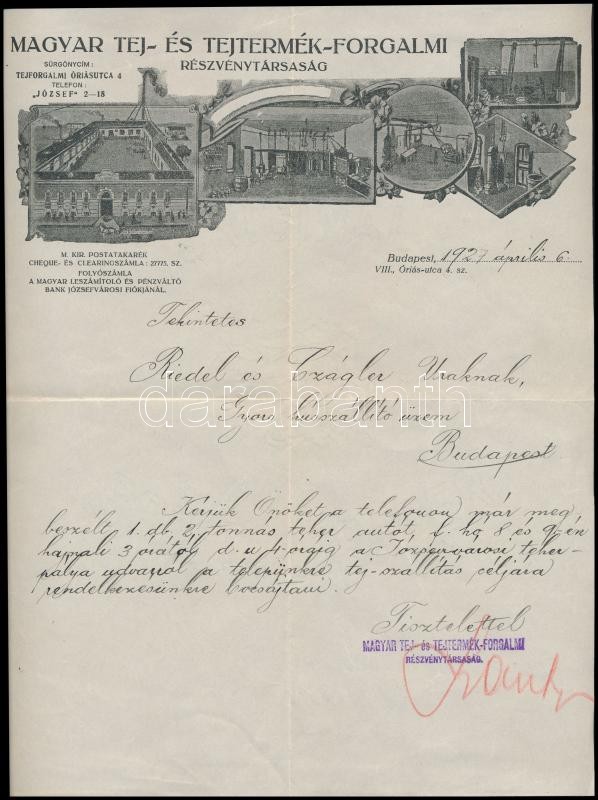 MAGYAR TEJ- ÉS TEJTERMÉK-FORGALMI
RÉSZVÉNYTÁRSASÁG
SÜRGÖNYCÍM :
TEJFORGALMI ÓRIÁSUTCA 4
TELEFON :
„JÓZSEF" 2—18
M. KIR. POSTATAKARÉK
CHEQUE- ÉS CLEARINGSZÁMLA : 27775. SZ.
FOLYÓSZÁMLA
A MAGYAR LESZÁMITOLÓ ÉS PÉNZVÁLTÓ
BANK JÓZSEFVÁROSI FIÓKJÁNÁL.
Budapest, 1927 április 6.
VIII., Óriás-utca 4. sz.
Tekintetes
Riedel és Szágler Uraknak,
Gyors hússzállító üzem
Budapest
Kérjük Önöket a telefonon már meg
beszélt 1. db. 2 tonnás teher autót, f. hó 8 és 9-én
hajnali 3 órától d. u 4 óráig a Józsefvárosi teher-
pálya udvarról a telepünkre tej-szállítás céljára
rendelkezésünkre bocsájtani.
Tisztelettel
MAGYAR TEJ- és TEJTERMÉK-FORGALMI
RÉSZVÉNYTÁRSASÁG.
darabanth